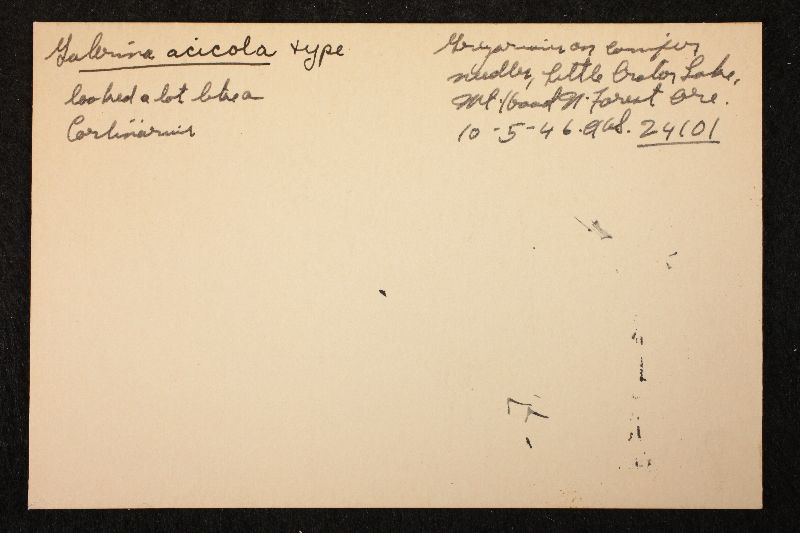 Galerina acicola type
looked a lot like a
Cortinarius
Gregarious on conifer
needles, Little Crater Lake,
Mt. Hood N. Forest Ore.
10-5-46. AHS. 24101